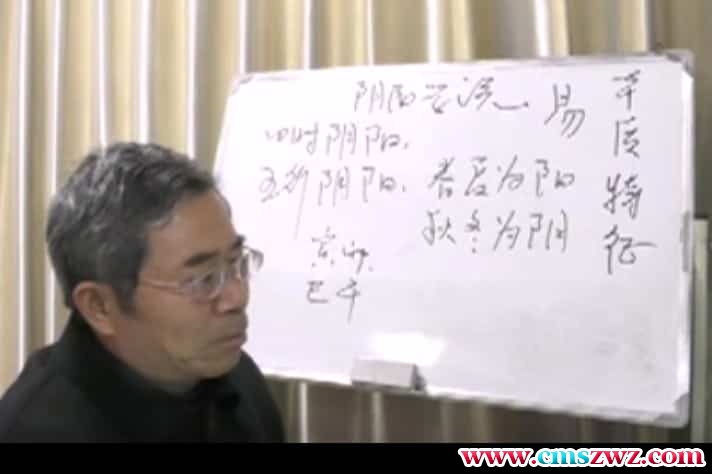 阴阳学说 易
四时阴阳.
五行阴阳. 春夏为阳
秋冬为阴
寅卯
巳午
本质特征
www.cmszwz.com